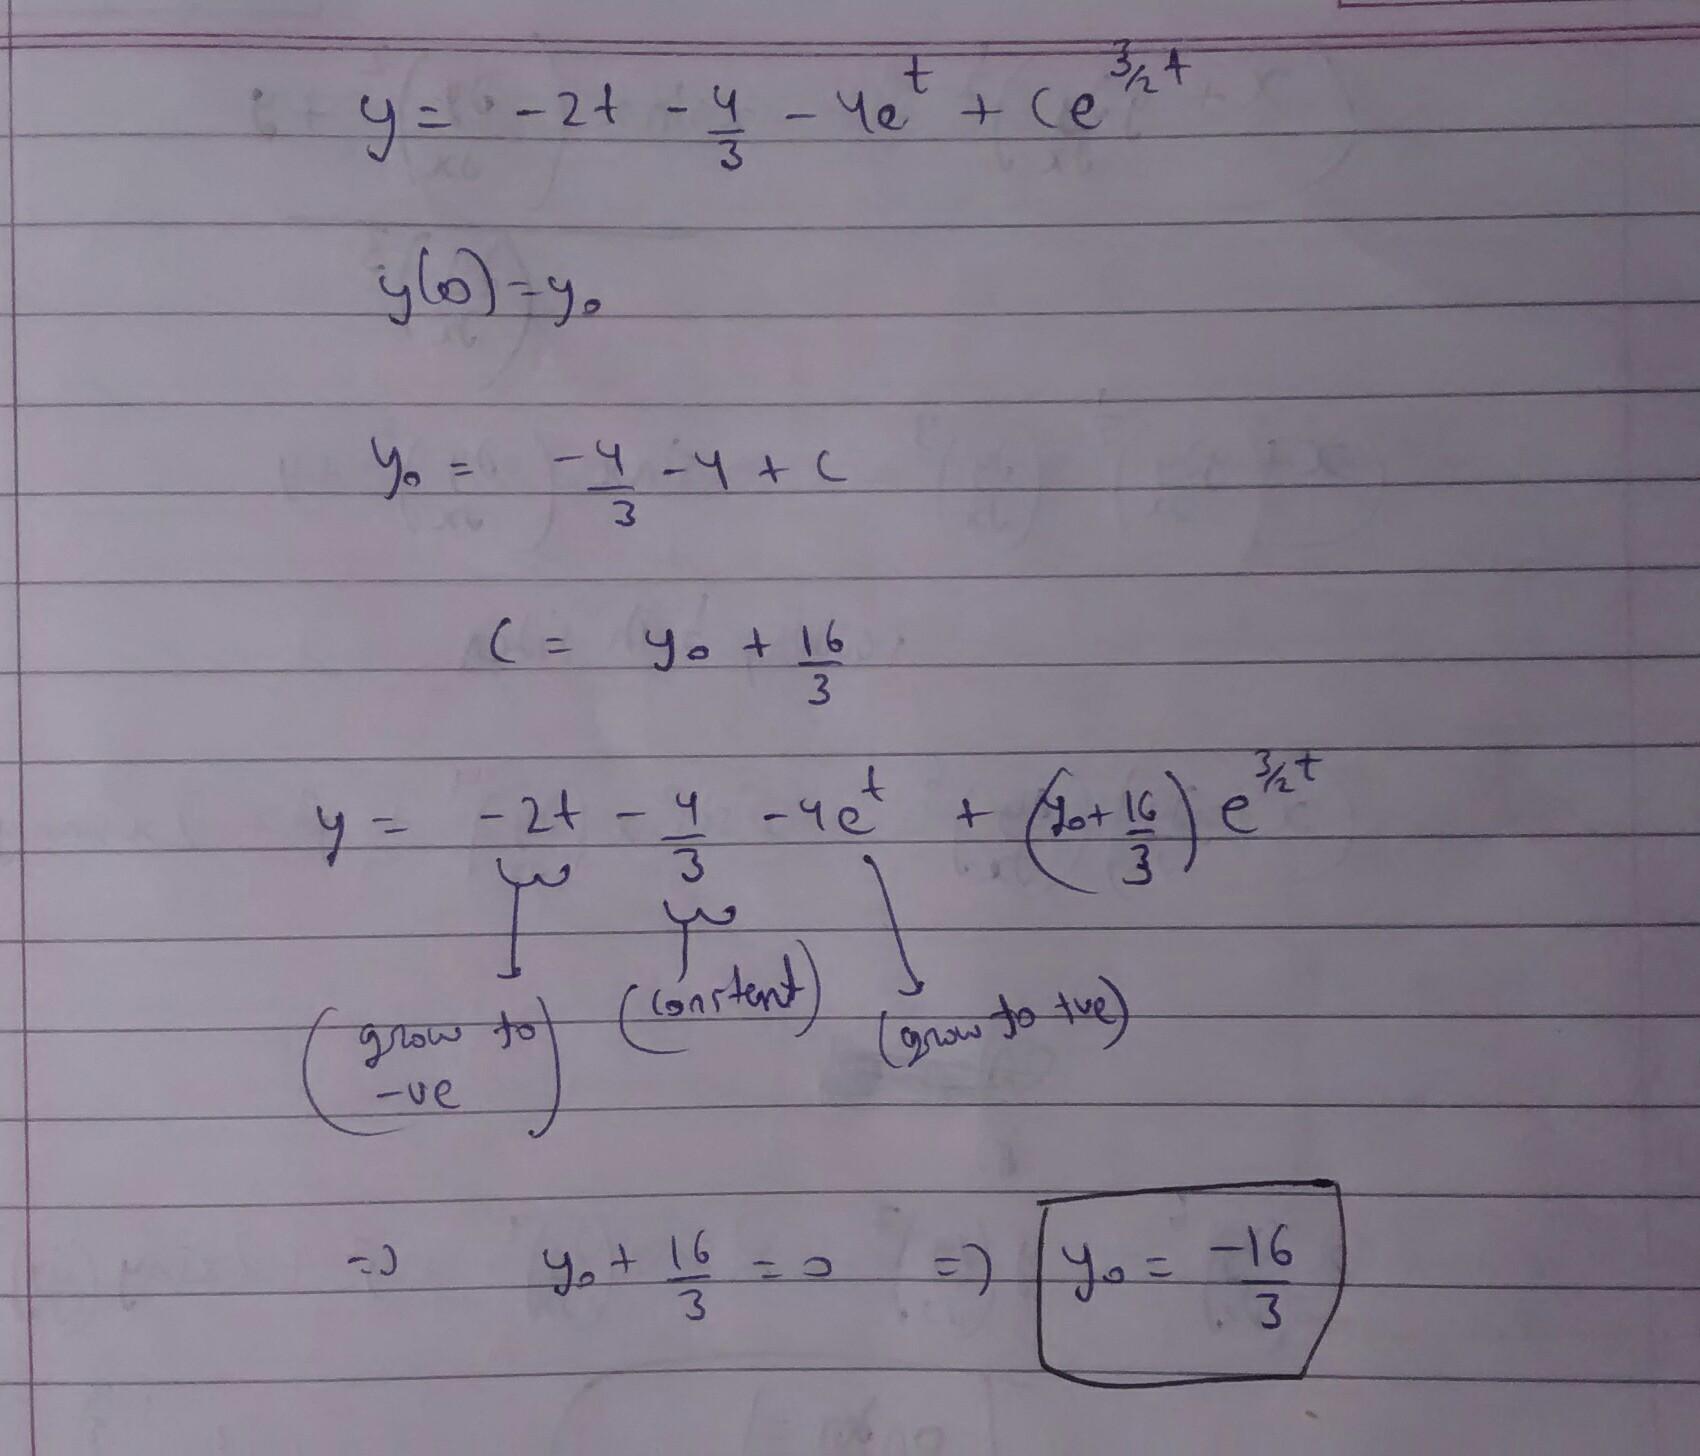 y = -2t - 4/3 - 4e^t + Ce^{3/2 t}
y(0) = y₀
y₀ = -4/3 - 4 + C
C = y₀ + 16/3
y = -2t - 4/3 - 4e^t + (y₀ + 16/3) e^{3/2 t}
(grow to -ve) (constent) (grow to +ve)
=> y₀ + 16/3 = 0 => y₀ = -16/3